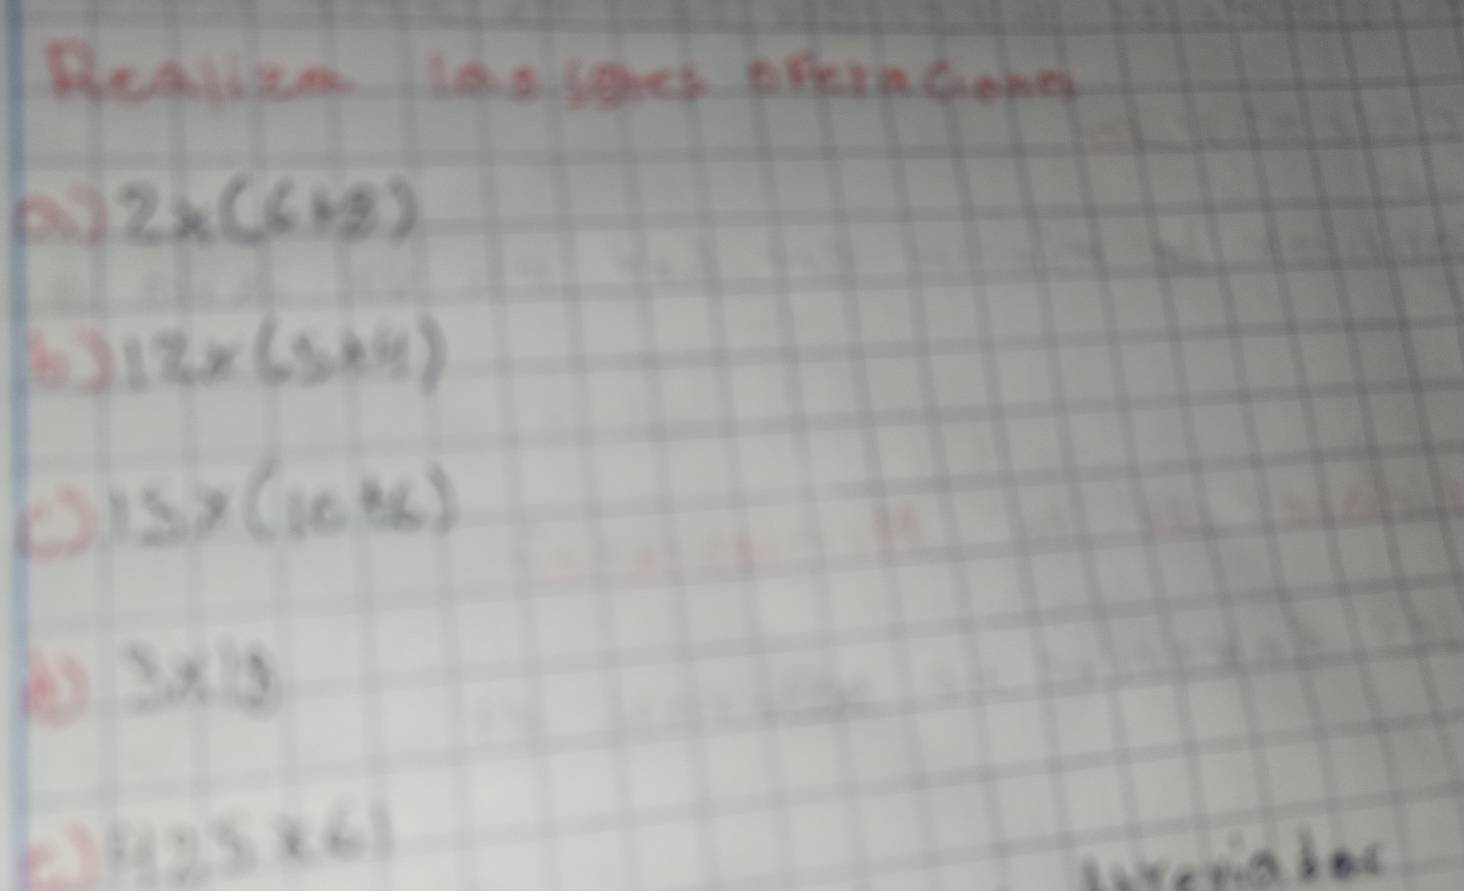 Realiza las sgtes operaciones
a) 2x(6+8)
b) 12x(5+4)
c) 15x(10+6)
d) 3x13
e) 425x61